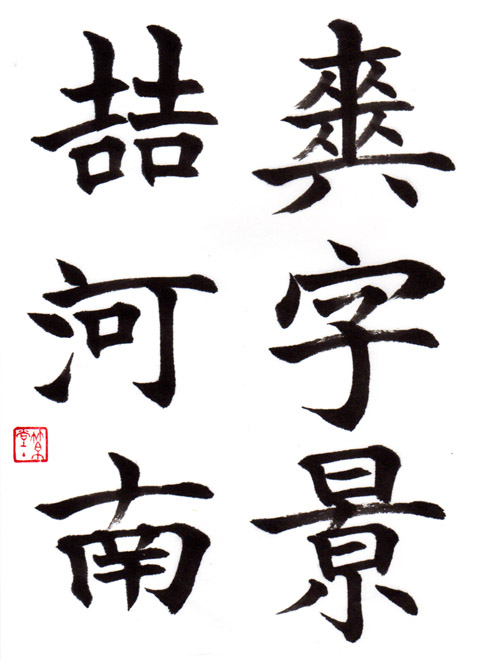 爽字景
喆河南